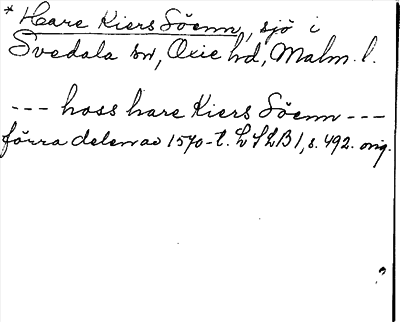 * Hare Kiers Söenn, sjö i
Svedala sn, Oxie hd, Malm. l.
--- hoss hare Kiers Söenn ---
förra delen av 1570-t. LSLB 1, s. 492. orig.
?